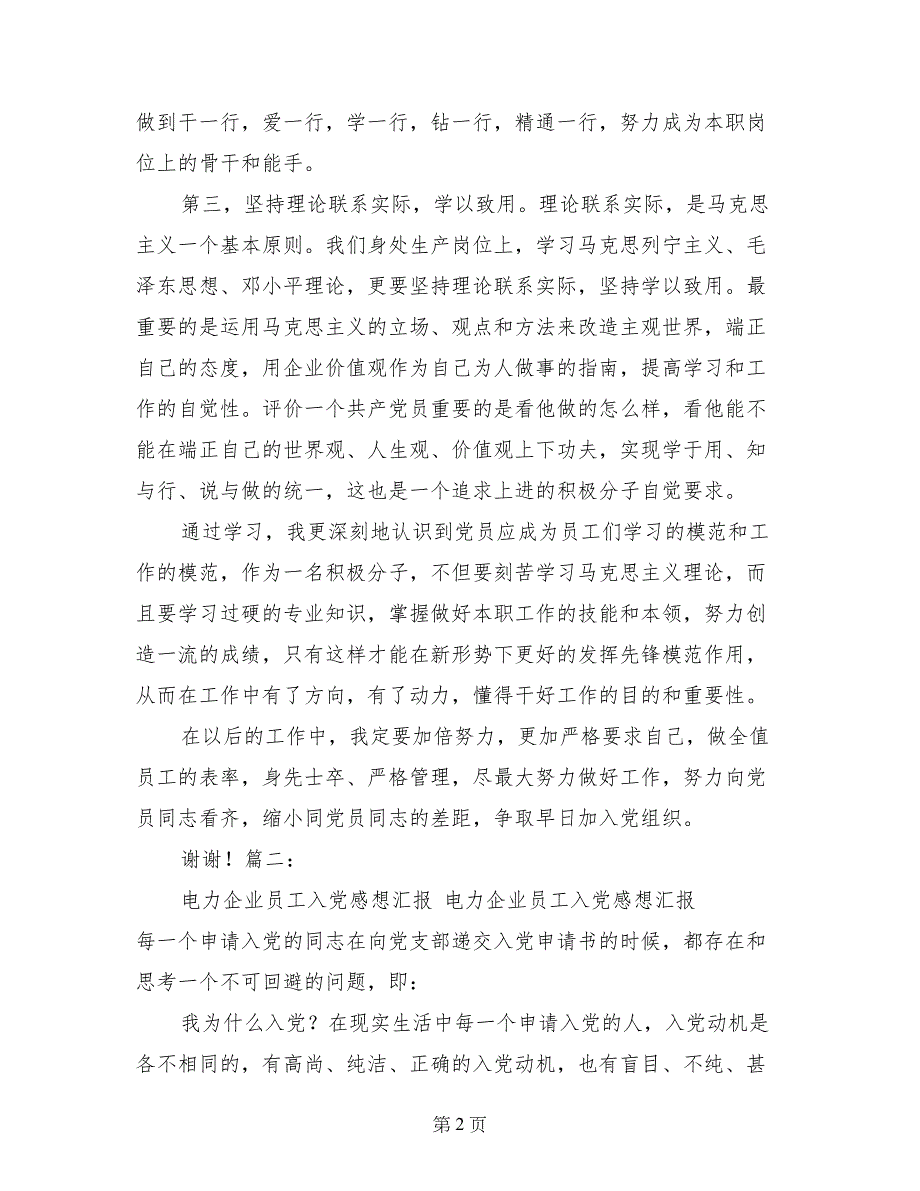 做到干一行，爱一行，学一行，钻一行，精通一行，努力成为本职岗
位上的骨干和能手。
第三，坚持理论联系实际，学以致用。理论联系实际，是马克思
主义一个基本原则。我们身处生产岗位上，学习马克思列宁主义、毛
泽东思想、邓小平理论，更要坚持理论联系实际，坚持学以致用。最
重要的是运用马克思主义的立场、观点和方法来改造主观世界，端正
自己的态度，用企业价值观作为自己为人做事的指南，提高学习和工
作的自觉性。评价一个共产党员重要的是看他做的怎么样，看他能不
能在端正自己的世界观、人生观、价值观上下功夫，实现学于用、知
与行、说与做的统一，这也是一个追求上进的积极分子自觉要求。
通过学习，我更深刻地认识到党员应成为员工们学习的模范和工
作的模范，作为一名积极分子，不但要刻苦学习马克思主义理论，而
且要学习过硬的专业知识，掌握做好本职工作的技能和本领，努力创
造一流的成绩，只有这样才能在新形势下更好的发挥先锋模范作用，
从而在工作中有了方向，有了动力，懂得干好工作的目的和重要性。
在以后的工作中，我定要加倍努力，更加严格要求自己，做全值
员工的表率，身先士卒、严格管理，尽最大努力做好工作，努力向党
员同志看齐，缩小同党员同志的差距，争取早日加入党组织。
谢谢！篇二：
电力企业员工入党感想汇报 电力企业员工入党感想汇报
每一个申请入党的同志在向党支部递交入党申请书的时候，都存在和
思考一个不可回避的问题，即：
我为什么入党？在现实生活中每一个申请入党的人，入党动机是
各不相同的，有高尚、纯洁、正确的入党动机，也有盲目、不纯、甚
第 2 页